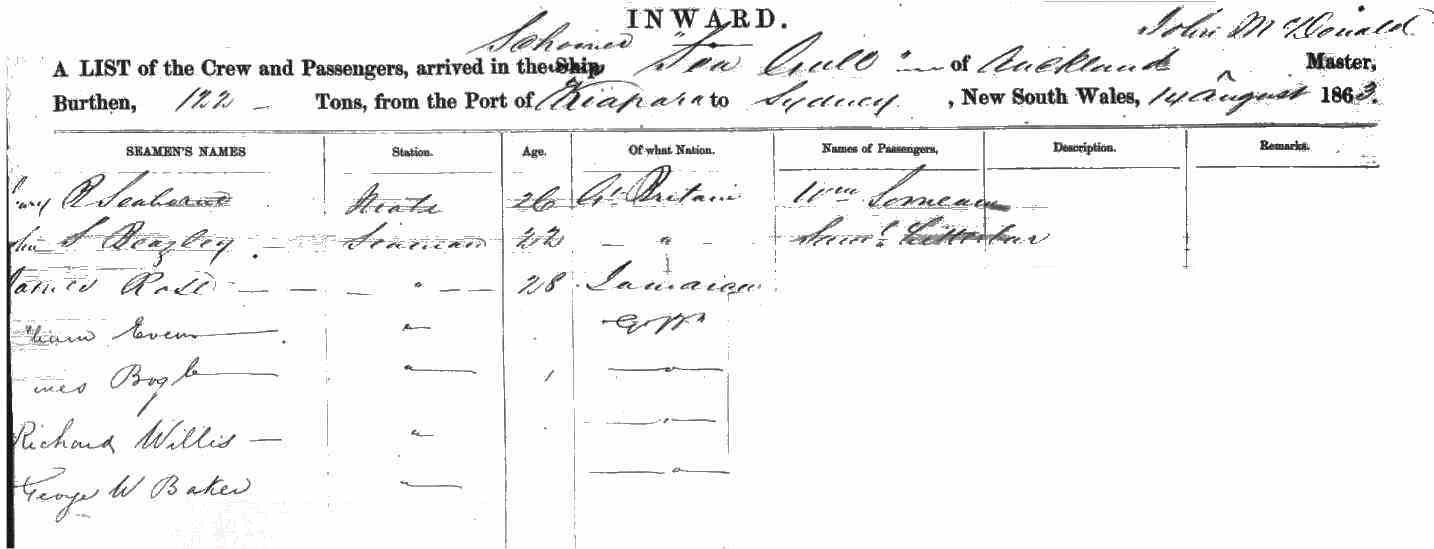 INWARD.
Schooner "Sea Gull" John McDonald
A LIST of the Crew and Passengers, arrived in the Ship, of Auckland Master,
Burthen, 122 Tons, from the Port of Kiapara to Sydney, New South Wales, 14 August 1863.
SEAMEN'S NAMES Station. Age. Of what Nation. Names of Passengers, Description. Remarks.
R Seaborne Mate 26 Gt Britain Wm
S Beazley Seaman 22 " Saml
James Rose " 28 Jamaica
Evens " G B
Bogle " "
Richard Willis " "
George W Baker " "